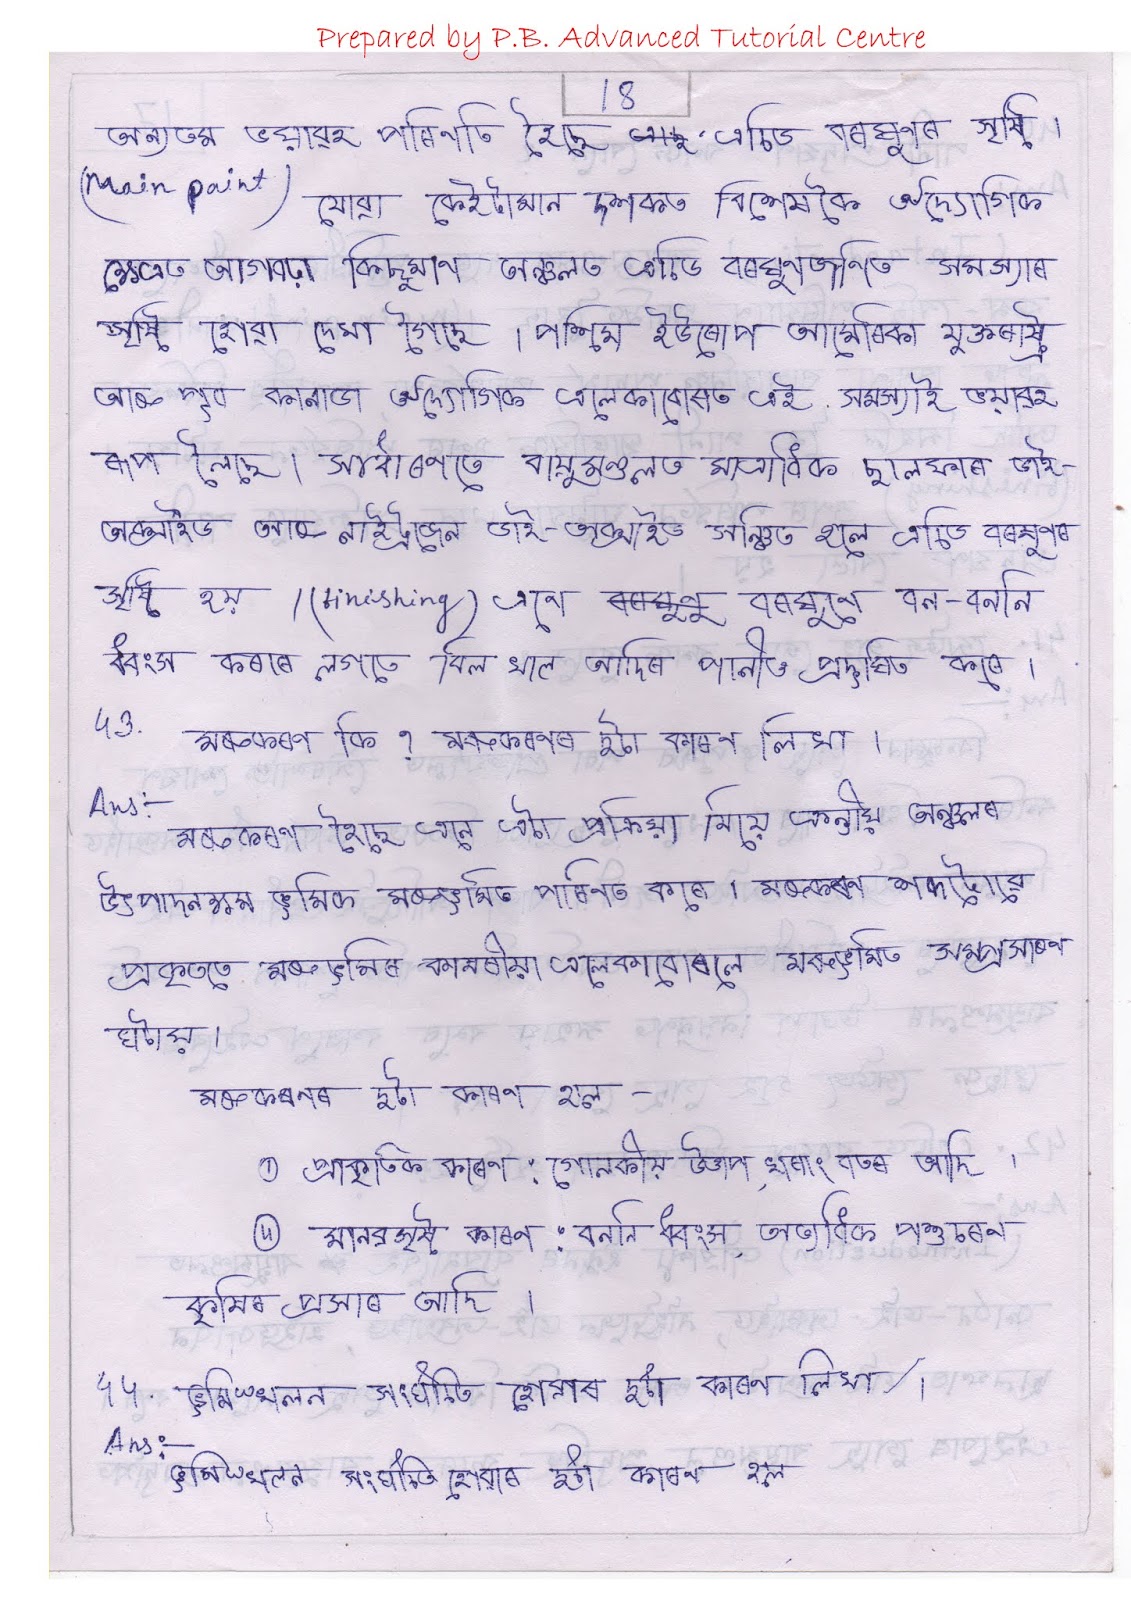 Prepared by P.B. Advanced Tutorial Centre
18
অন্যতম ভয়াৱহ পৰিণতি হৈছে এচিড বৰষুণৰ সৃষ্টি ।
(main point) যোৱা কেইটামান দশকত বিশেষকৈ ঔদ্যোগিক
ক্ষেত্ৰত আগবঢ়া কিছুমান অঞ্চলত এচিড বৰষুণজনিত সমস্যাৰ
সৃষ্টি হোৱা দেখা গৈছে । পশ্চিম ইউৰোপ আমেৰিকা যুক্তৰাষ্ট্ৰ
আৰু পূব কানাডা ঔদ্যোগিক এলেকাবোৰত এই সমস্যাই ভয়াৱহ
ৰূপ লৈছে । সাধাৰণতে বায়ুমণ্ডলত মাত্ৰাধিক ছালফাৰ ডাই-
অক্সাইড আৰু নাইট্ৰোজেন ডাই-অক্সাইড সঞ্চিত হলে এচিড বৰষুণৰ
সৃষ্টি হয় । (finishing) এনে বৰষুণে বন-বননি
ধ্বংস কৰাৰ লগতে বিল খাল আদিৰ পানীত প্ৰদূষিত কৰে ।
43. মৰুকৰণ কি ? মৰুকৰণৰ দুটা কাৰণ লিখা ।
Ans:-
মৰুকৰণ হৈছে এনে এটা প্ৰক্ৰিয়া যিয়ে ক্ৰান্তীয় অঞ্চলৰ
উৎপাদনক্ষম ভূমিক মৰুভূমিত পৰিণত কৰে । মৰুকৰণ শব্দটোৱে
প্ৰকৃততে মৰুভূমিৰ কাষৰীয়া এলেকাবোৰলে মৰুভূমিত সম্প্ৰসাৰণ
ঘটায় ।
মৰুকৰণৰ দুটা কাৰণ হল -
(i) প্ৰাকৃতিক কাৰণ : গোলকীয় উত্তাপ, খৰাং বতৰ আদি ।
(ii) মানৱসৃষ্ট কাৰণ : বননি ধ্বংস, অত্যধিক পশুচৰণ
কৃষিৰ প্ৰসাৰ আদি ।
44. ভূমিস্খলন সংঘটিত হোৱাৰ দুটা কাৰণ লিখা ।
Ans:-
ভূমিস্খলন সংঘটিত হোৱাৰ দুটা কাৰণ হল